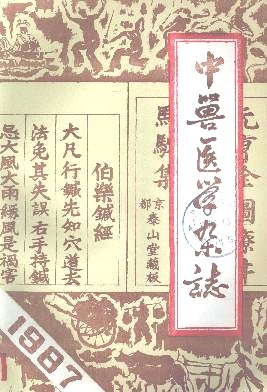 中兽医学杂誌
馬駝集
京都泰山堂藏板
伯樂鍼經
大凡行鍼先知穴道去
法免其失誤右手持鍼
忌大風大雨緣風是禍害
1987
1